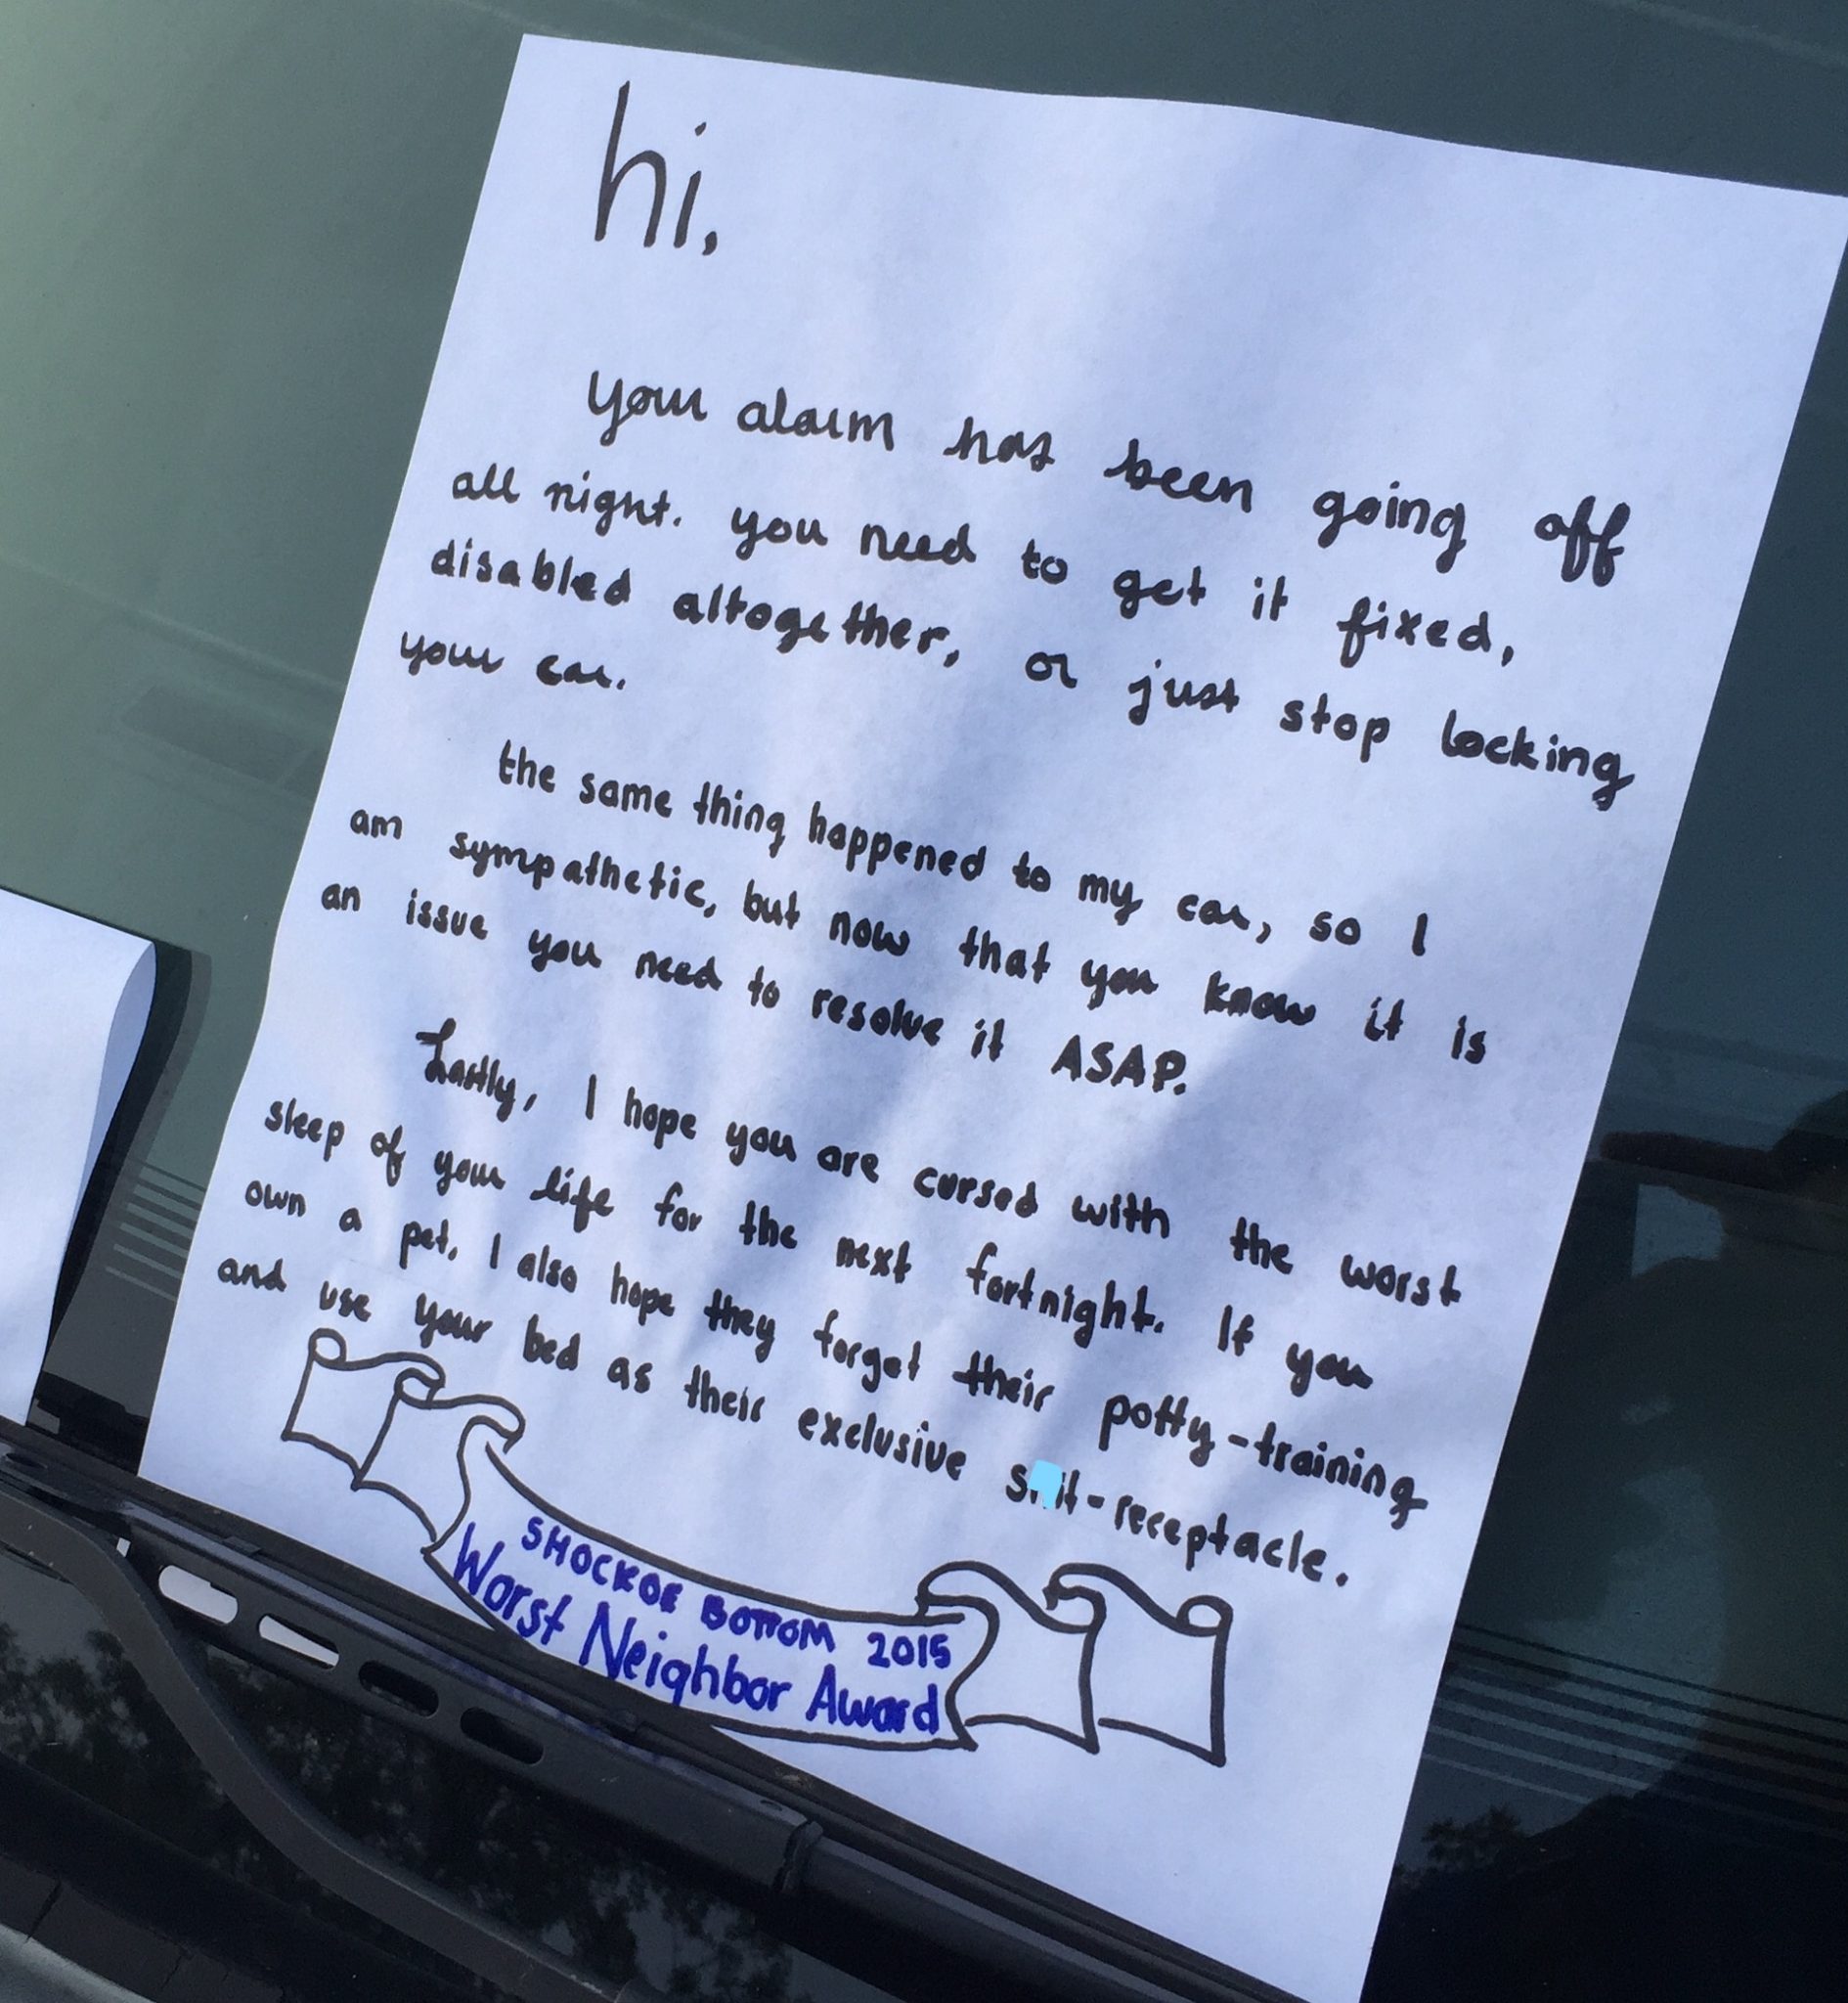 hi,
your alarm has been going off
all night. you need to get it fixed,
disabled altogether, or just stop locking
your car.
the same thing happened to my car, so I
am sympathetic, but now that you know it is
an issue you need to resolve it ASAP.
Lastly, I hope you are cursed with the worst
sleep of your life for the next fortnight. If you
own a pet, I also hope they forget their potty-training
and use your bed as their exclusive shit-receptacle.
SHOCKOE BOTTOM 2015
Worst Neighbor Award